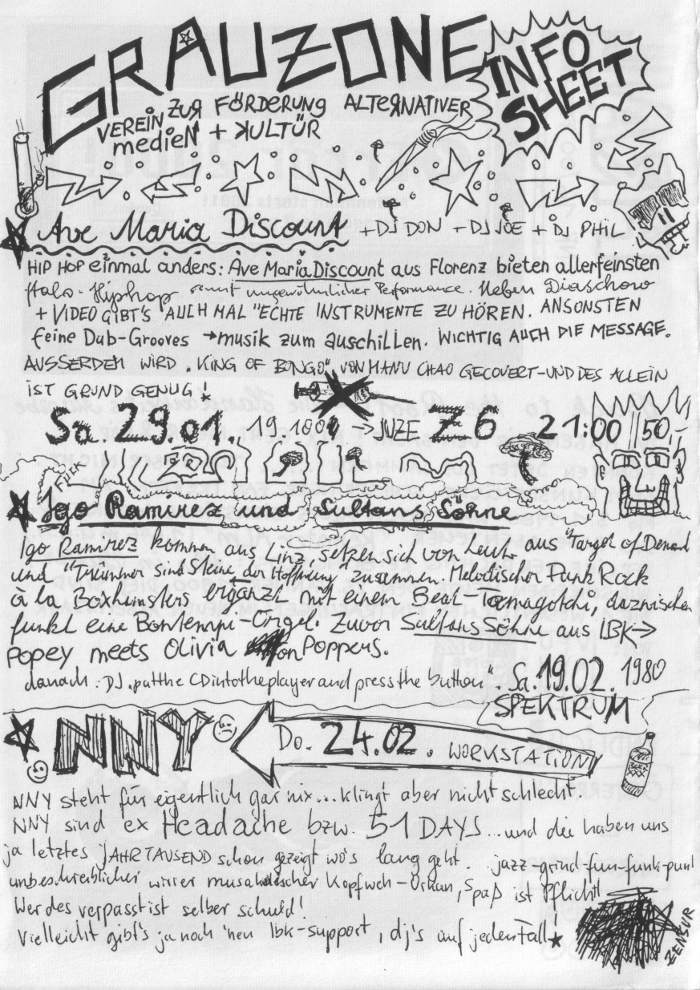 GRAUZONE
INFO
SHEET
VEREIN ZUR FÖRDERUNG ALTERNATIVER
medien + KULTUR
Ave Maria Discount + DJ DON + DJ JOE + DJ PHIL
HIP HOP einmal anders: Ave Maria Discount aus Florenz bieten allerfeinsten
Italo-Hiphop samt ungewöhnlicher Performance. Neben Diaschow
+ VIDEO GIBT'S AUCH MAL "ECHTE INSTRUMENTE ZU HÖREN. ANSONSTEN
feine Dub-Grooves → musik zum auschillen. WICHTIG AUCH DIE MESSAGE.
AUSSERDEM WIRD "KING OF BONGO" VON MANU CHAO GECOVERT - UND DES ALLEIN
iST GRUND GENUG!
Sa. 29.01., → JUZE Z6 21:00 50,
Igo Ramirez und Sultans Söhne
Igo Ramirez kommen aus Linz, setzen sich von Leuten aus "Target of Demand
und "Trümmer sind Steine der Hoffnung" zusammen. Melodischer Punk Rock
à la Boxhamsters ergänzt mit einem Beat-Tamagotchi, dazwischen
funkt eine Bontempi-Orgel. Zuvor Sultans Söhne aus IBK →
Popey meets Olivia on Poppers.
danach: DJ. put the CD into the player and press the button. Sa. 19.02. 1980
SPEKTRUM
NNY Do. 24.02. WORKSTATION
NNY steht für eigentlich gar nix... klingt aber nicht schlecht.
NNY sind ex Headache bzw. 51 DAYS... und die haben uns
ja letztes JAHRTAUSEND schon gezeigt wo's lang geht. jazz-grind-fun-funk-pun
unbeschreiblicher wirrer musikalischer Kopfweh-Orkan, Spaß ist Pflicht!
Wer des verpasst ist selber schuld!
Vielleicht gibt's ja noch 'nen Ibk-support, dj's auf jeden Fall
ZENSUR